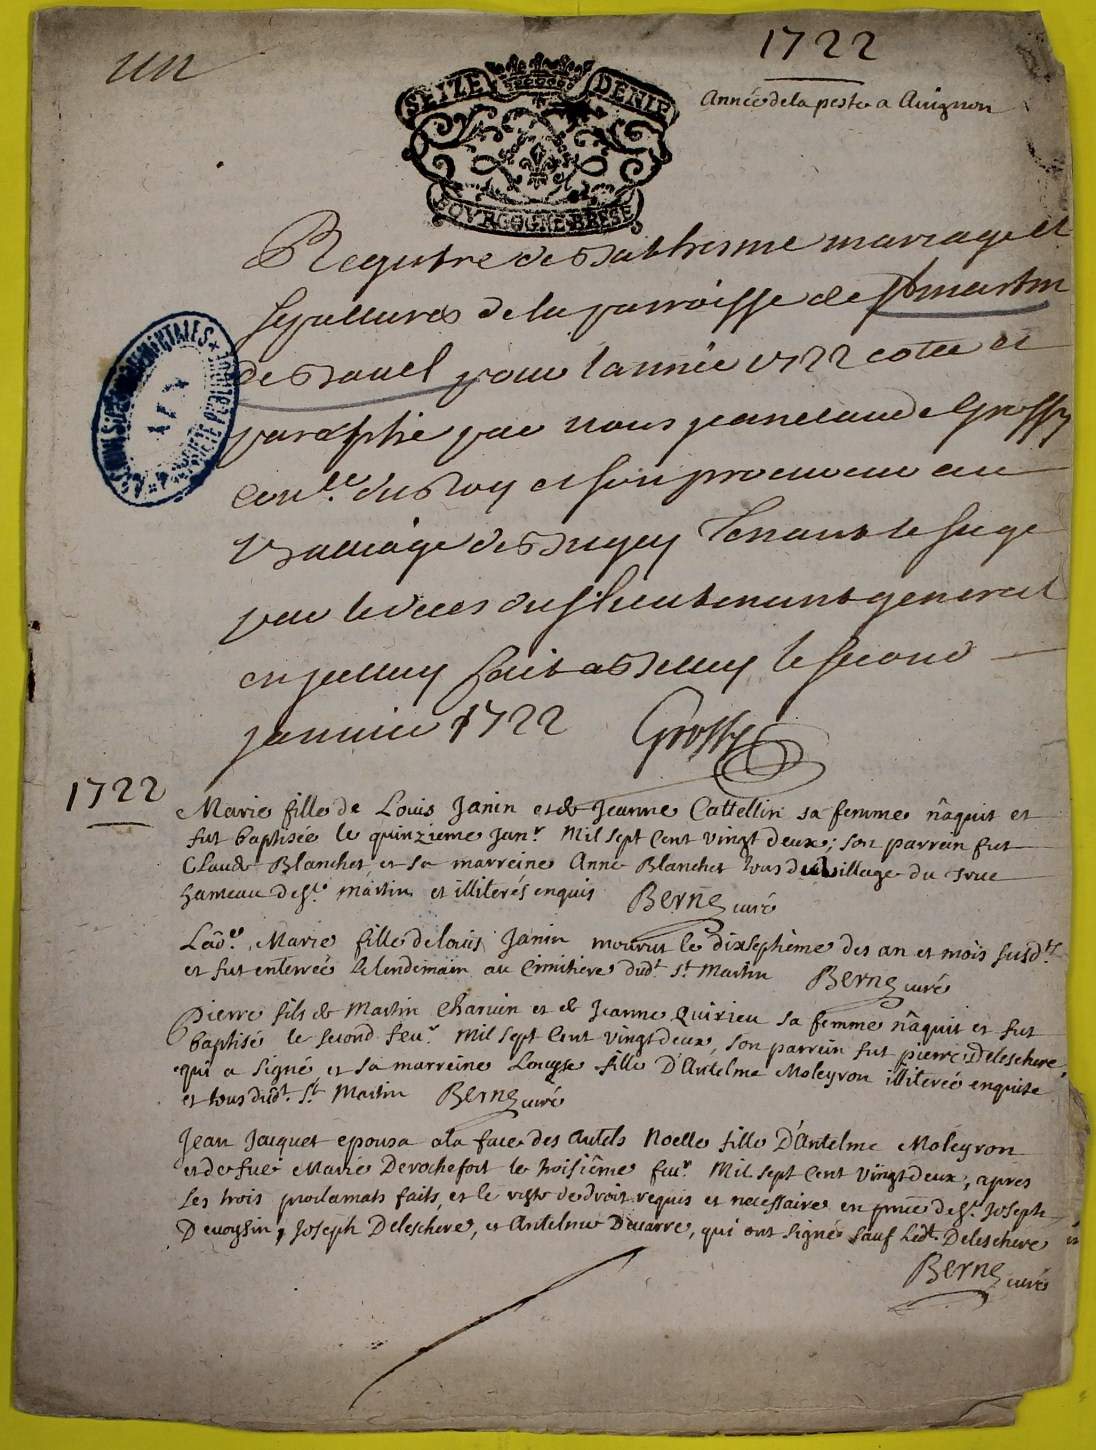 un
1722
Année de la peste a Avignon
SEIZE DENIE
BOVRGOGNE BRESE
Registre de Bathesme mariage et
sepultures de la parroisse de St martin
de Bavel pour l'année 1722 cotté et
paraphé par nous jean claude Grossy
con.er du Roy et son procureur au
Balliage de Bugey tenant le siege
par le deces du Sr lieutenant general
en jcelluy fait a Belley le second
janvier 1722 Grossy
1722
Marie fille de Louis Janin et de Jeanne Cattellin sa femme nâquit et
fut baptisée le quinzieme Jan.r Mil sept Cent vingt deux; son parrein fut
Claude Blanchet, et sa marreine Anne Blanchet tous du village du
hameau de St. martin et illiterés enquis Berne curé
Lad.e Marie fille de louis Janin mourut le dixsephème des an et mois susd.ts
et fut enterrée le lendemain au cimitiere dud.t St Martin Berne curé
Pierre fils de Martin Charvin et de Jeanne Quirieu sa femme nâquit et fut
baptisé le second feu.r Mil sept Cent vingt deux, son parrein fut pierre Deleschere,
qui a signé et sa marreine Louyse fille D'Antelme Moleyron illiterée enquise
et tous dud.t St. Martin Berne curé
Jean Jacquet epousa a la face des Autels Noelle fille D'Antelme Moleyron
et de fuë Marie Derochefort le troisiême feu.r Mil sept Cent vingt deux, apres
les trois proclamats faits, et le reste de droit requis et necessaire en pnce de Sr. Joseph
Devoyssin, Joseph Deleschere, et Antelme Decarre, qui ont signé sauf led.t Deleschere
Berne curé